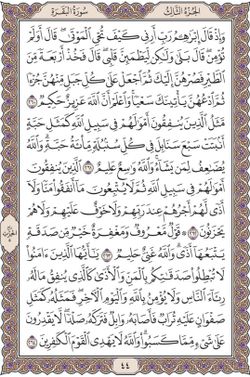 الجُزءُ الثَّالِثُ
سُورَةُ البَقَرَةِ
وَإِذْ قَالَ إِبْرَٰهِـۧمُ رَبِّ أَرِنِى كَيْفَ تُحْىِ ٱلْمَوْتَىٰ قَالَ أَوَلَمْ
تُؤْمِن قَالَ بَلَىٰ وَلَٰكِن لِّيَطْمَئِنَّ قَلْبِى قَالَ فَخُذْ أَرْبَعَةً مِّنَ
ٱلطَّيْرِ فَصُرْهُنَّ إِلَيْكَ ثُمَّ ٱجْعَلْ عَلَىٰ كُلِّ جَبَلٍ مِّنْهُنَّ جُزْءًا
ثُمَّ ٱدْعُهُنَّ يَأْتِينَكَ سَعْيًا وَٱعْلَمْ أَنَّ ٱللَّهَ عَزِيزٌ حَكِيمٌ ٢٦٠
مَّثَلُ ٱلَّذِينَ يُنفِقُونَ أَمْوَٰلَهُمْ فِى سَبِيلِ ٱللَّهِ كَمَثَلِ حَبَّةٍ
أَنۢبَتَتْ سَبْعَ سَنَابِلَ فِى كُلِّ سُنۢبُلَةٍ مِّا۟ئَةُ حَبَّةٍ وَٱللَّهُ
يُضَٰعِفُ لِمَن يَشَآءُ وَٱللَّهُ وَٰسِعٌ عَلِيمٌ ٢٦١ ٱلَّذِينَ يُنفِقُونَ
أَمْوَٰلَهُمْ فِى سَبِيلِ ٱللَّهِ ثُمَّ لَا يُتْبِعُونَ مَآ أَنفَقُوا۟ مَنًّا وَلَآ
أَذًى لَّهُمْ أَجْرُهُمْ عِندَ رَبِّهِمْ وَلَا خَوْفٌ عَلَيْهِمْ وَلَا هُمْ
يَحْزَنُونَ ٢٦٢ قَوْلٌ مَّعْرُوفٌ وَمَغْفِرَةٌ خَيْرٌ مِّن صَدَقَةٍ
يَتْبَعُهَآ أَذًى وَٱللَّهُ غَنِىٌّ حَلِيمٌ ٢٦٣ يَٰٓأَيُّهَا ٱلَّذِينَ ءَامَنُوا۟
لَا تُبْطِلُوا۟ صَدَقَٰتِكُم بِٱلْمَنِّ وَٱلْأَذَىٰ كَٱلَّذِى يُنفِقُ مَالَهُۥ
رِئَآءَ ٱلنَّاسِ وَلَا يُؤْمِنُ بِٱللَّهِ وَٱلْيَوْمِ ٱلْءَاخِرِ فَمَثَلُهُۥ كَمَثَلِ
صَفْوَانٍ عَلَيْهِ تُرَابٌ فَأَصَابَهُۥ وَابِلٌ فَتَرَكَهُۥ صَلْدًا لَّا يَقْدِرُونَ
عَلَىٰ شَىْءٍ مِّمَّا كَسَبُوا۟ وَٱللَّهُ لَا يَهْدِى ٱلْقَوْمَ ٱلْكَٰفِرِينَ ٢٦٤
٤٤